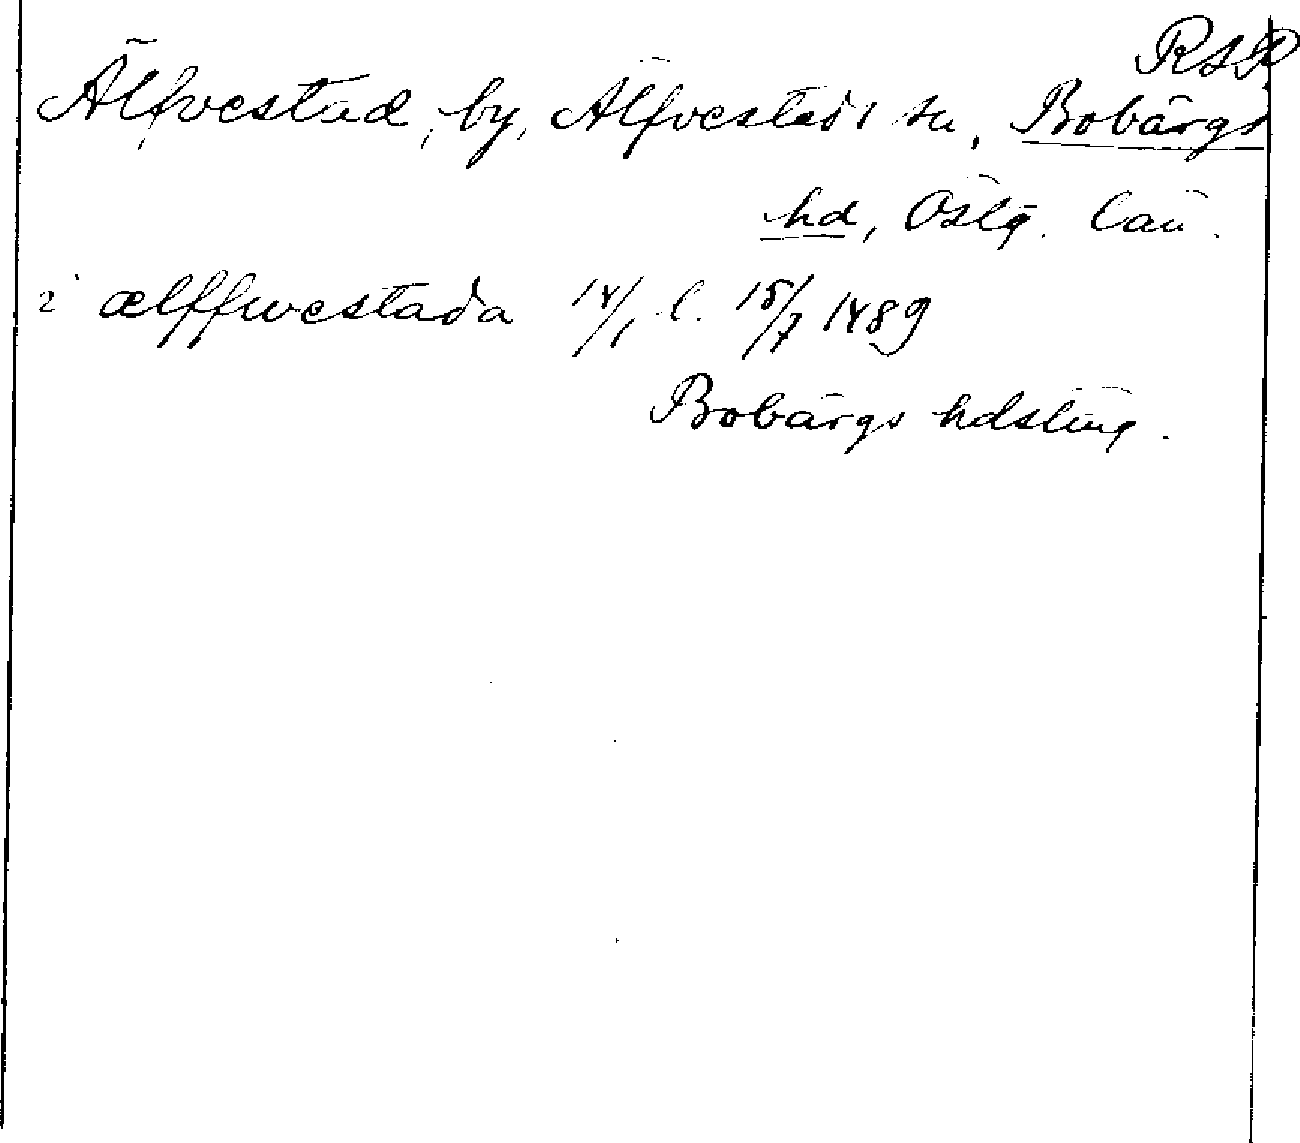 RSR
Älfvestad, by, Älfvestads sn, Bobärgs
hd, Östg. län.
i ælffwestada 14/1 l. 15/7 1489
Bobärgs hdsting.